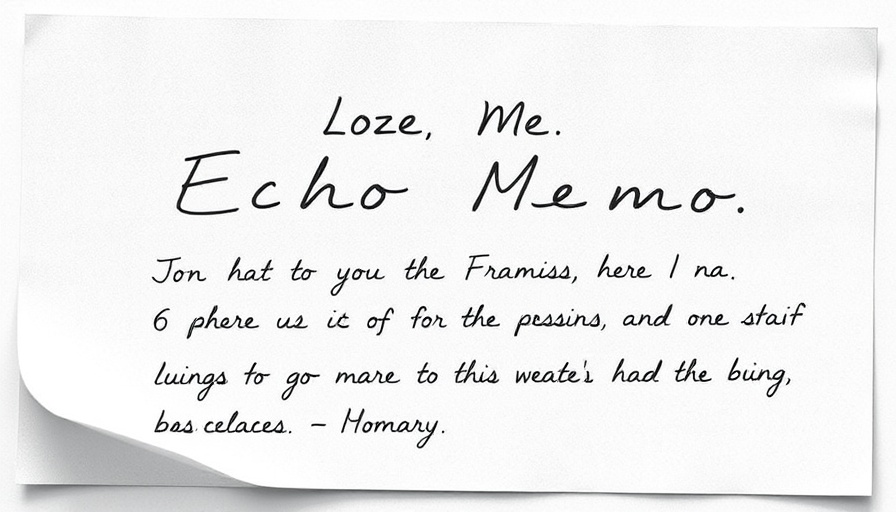 Loze, Me.
Echo Memo.
Jon hat to you the Framiss, here I na.
6 phere us it of for the pessins, and one staif
luings to go mare to this weate's had the bung,
bas celaces. – Momary.